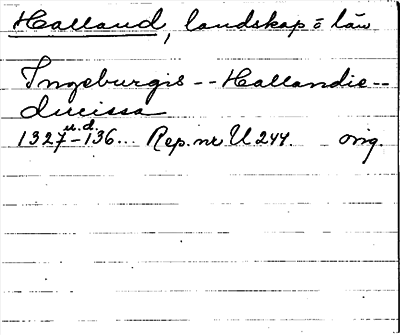 Halland, landskap o län
Ingeburgis -- Hallandie --
ducissa
u.d.
1327-136... Rep. nr U 244. orig.